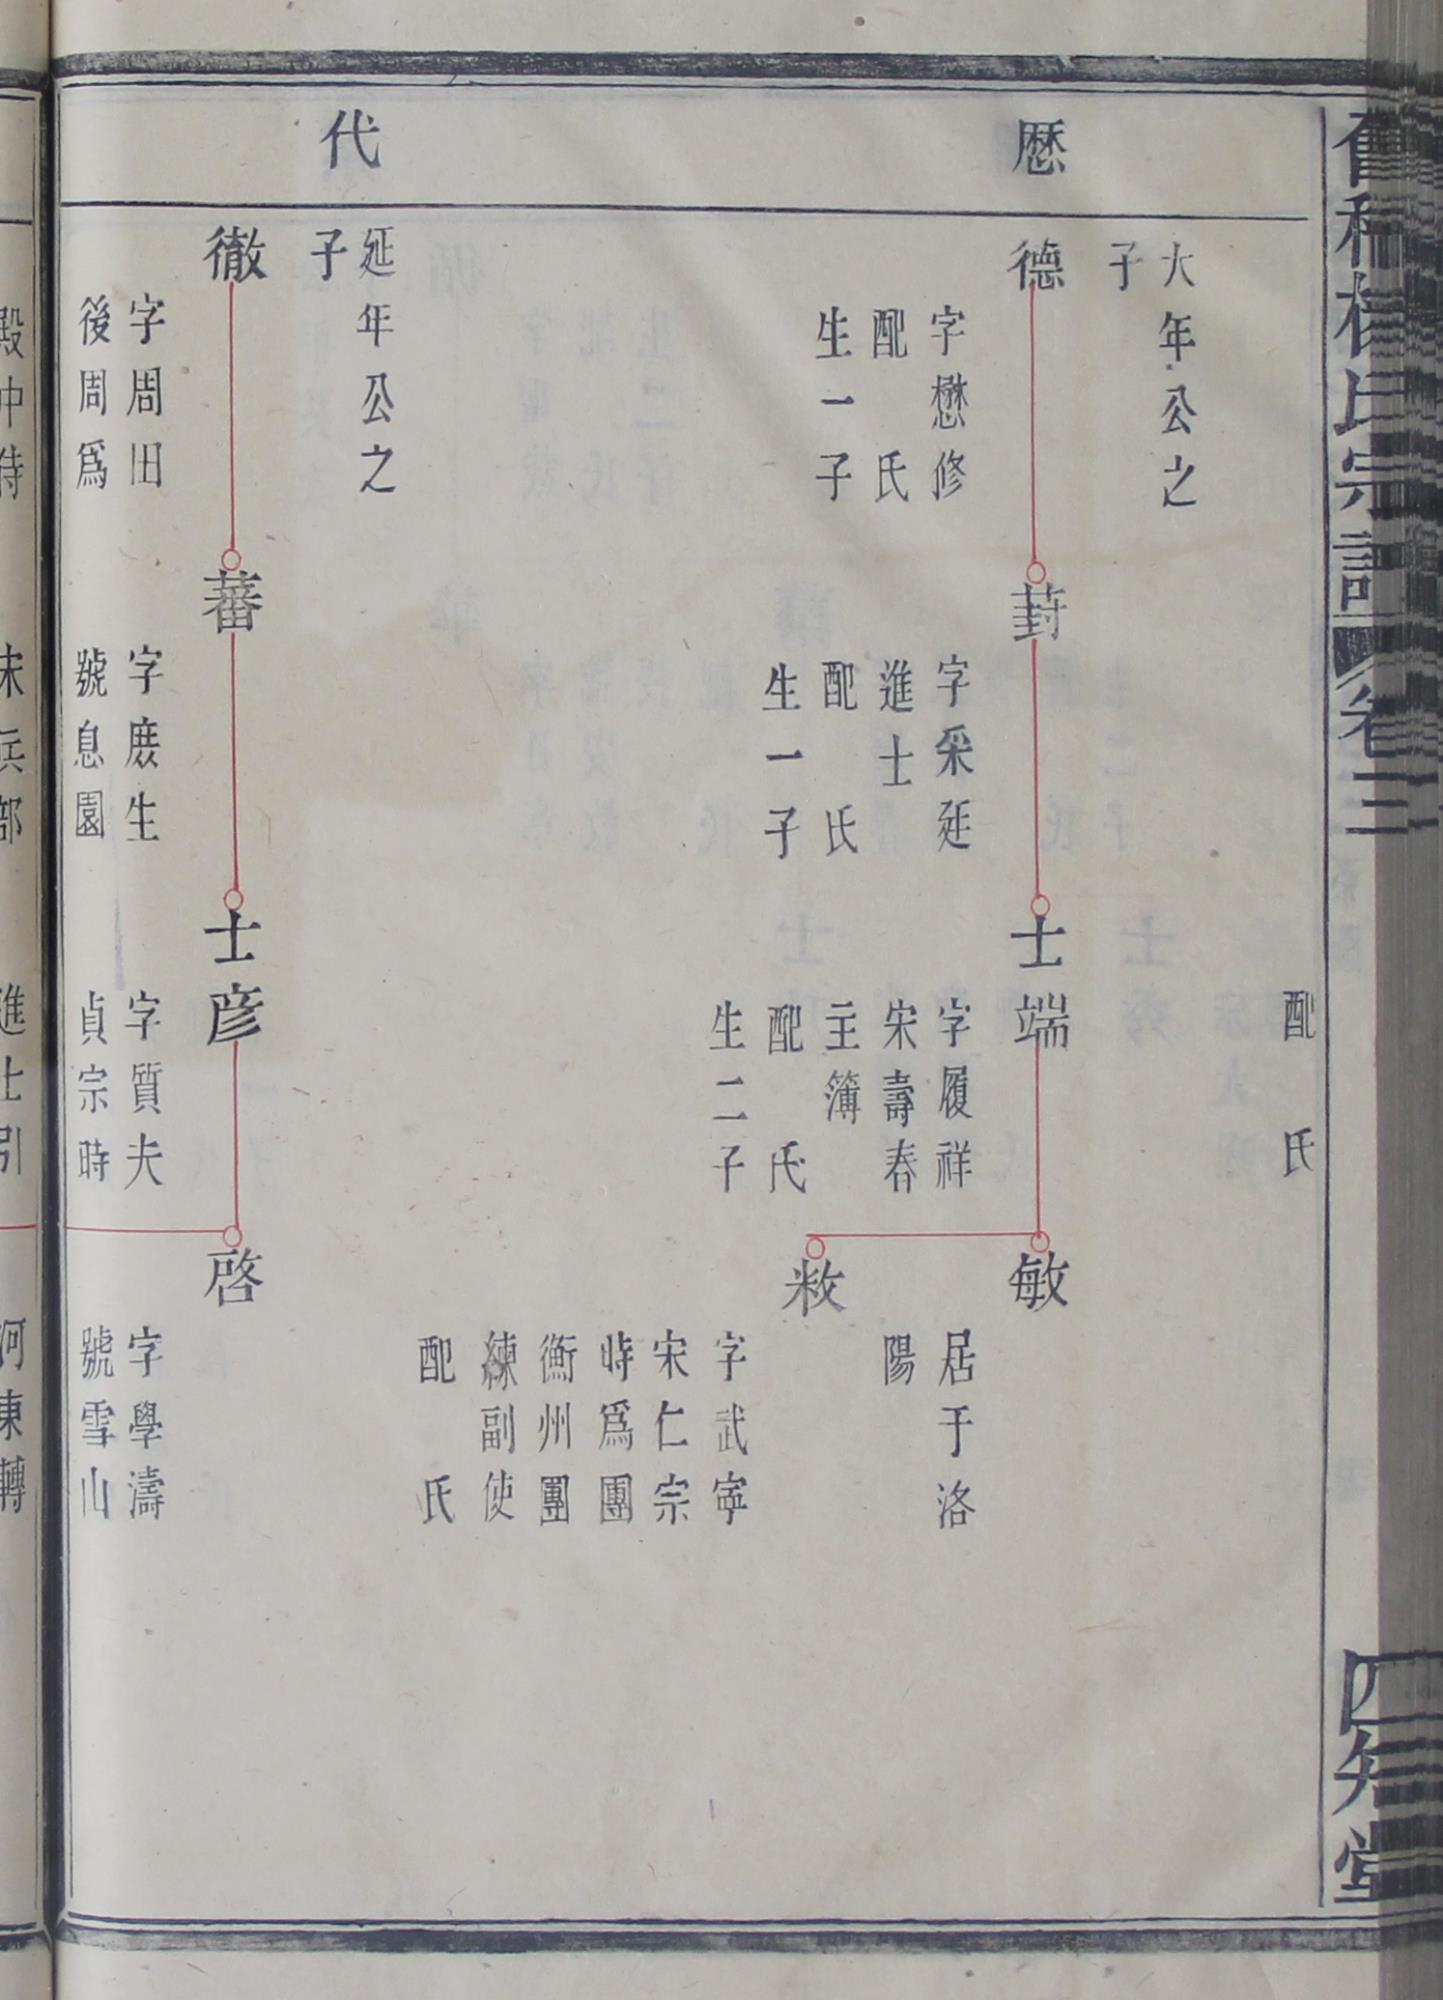 歷
代
配 氏
大年公之
子
德
字懋修
配 氏
生一子
葑
字采延
進士
配 氏
生一子
士端
字履祥
宋壽春
主簿
配 氏
生二子
敏
居于洛
陽
敉
字武寧
宋仁宗
時爲團
衡州團
練副使
配 氏
延年公之
子
徹
字周田
後周爲
蕃
字庶生
號息園
士彦
字質夫
貞宗時
啓
字學濤
號雪山
殿中侍
宋兵部
進士引
河東轉
氏宗譜 卷三
四知堂